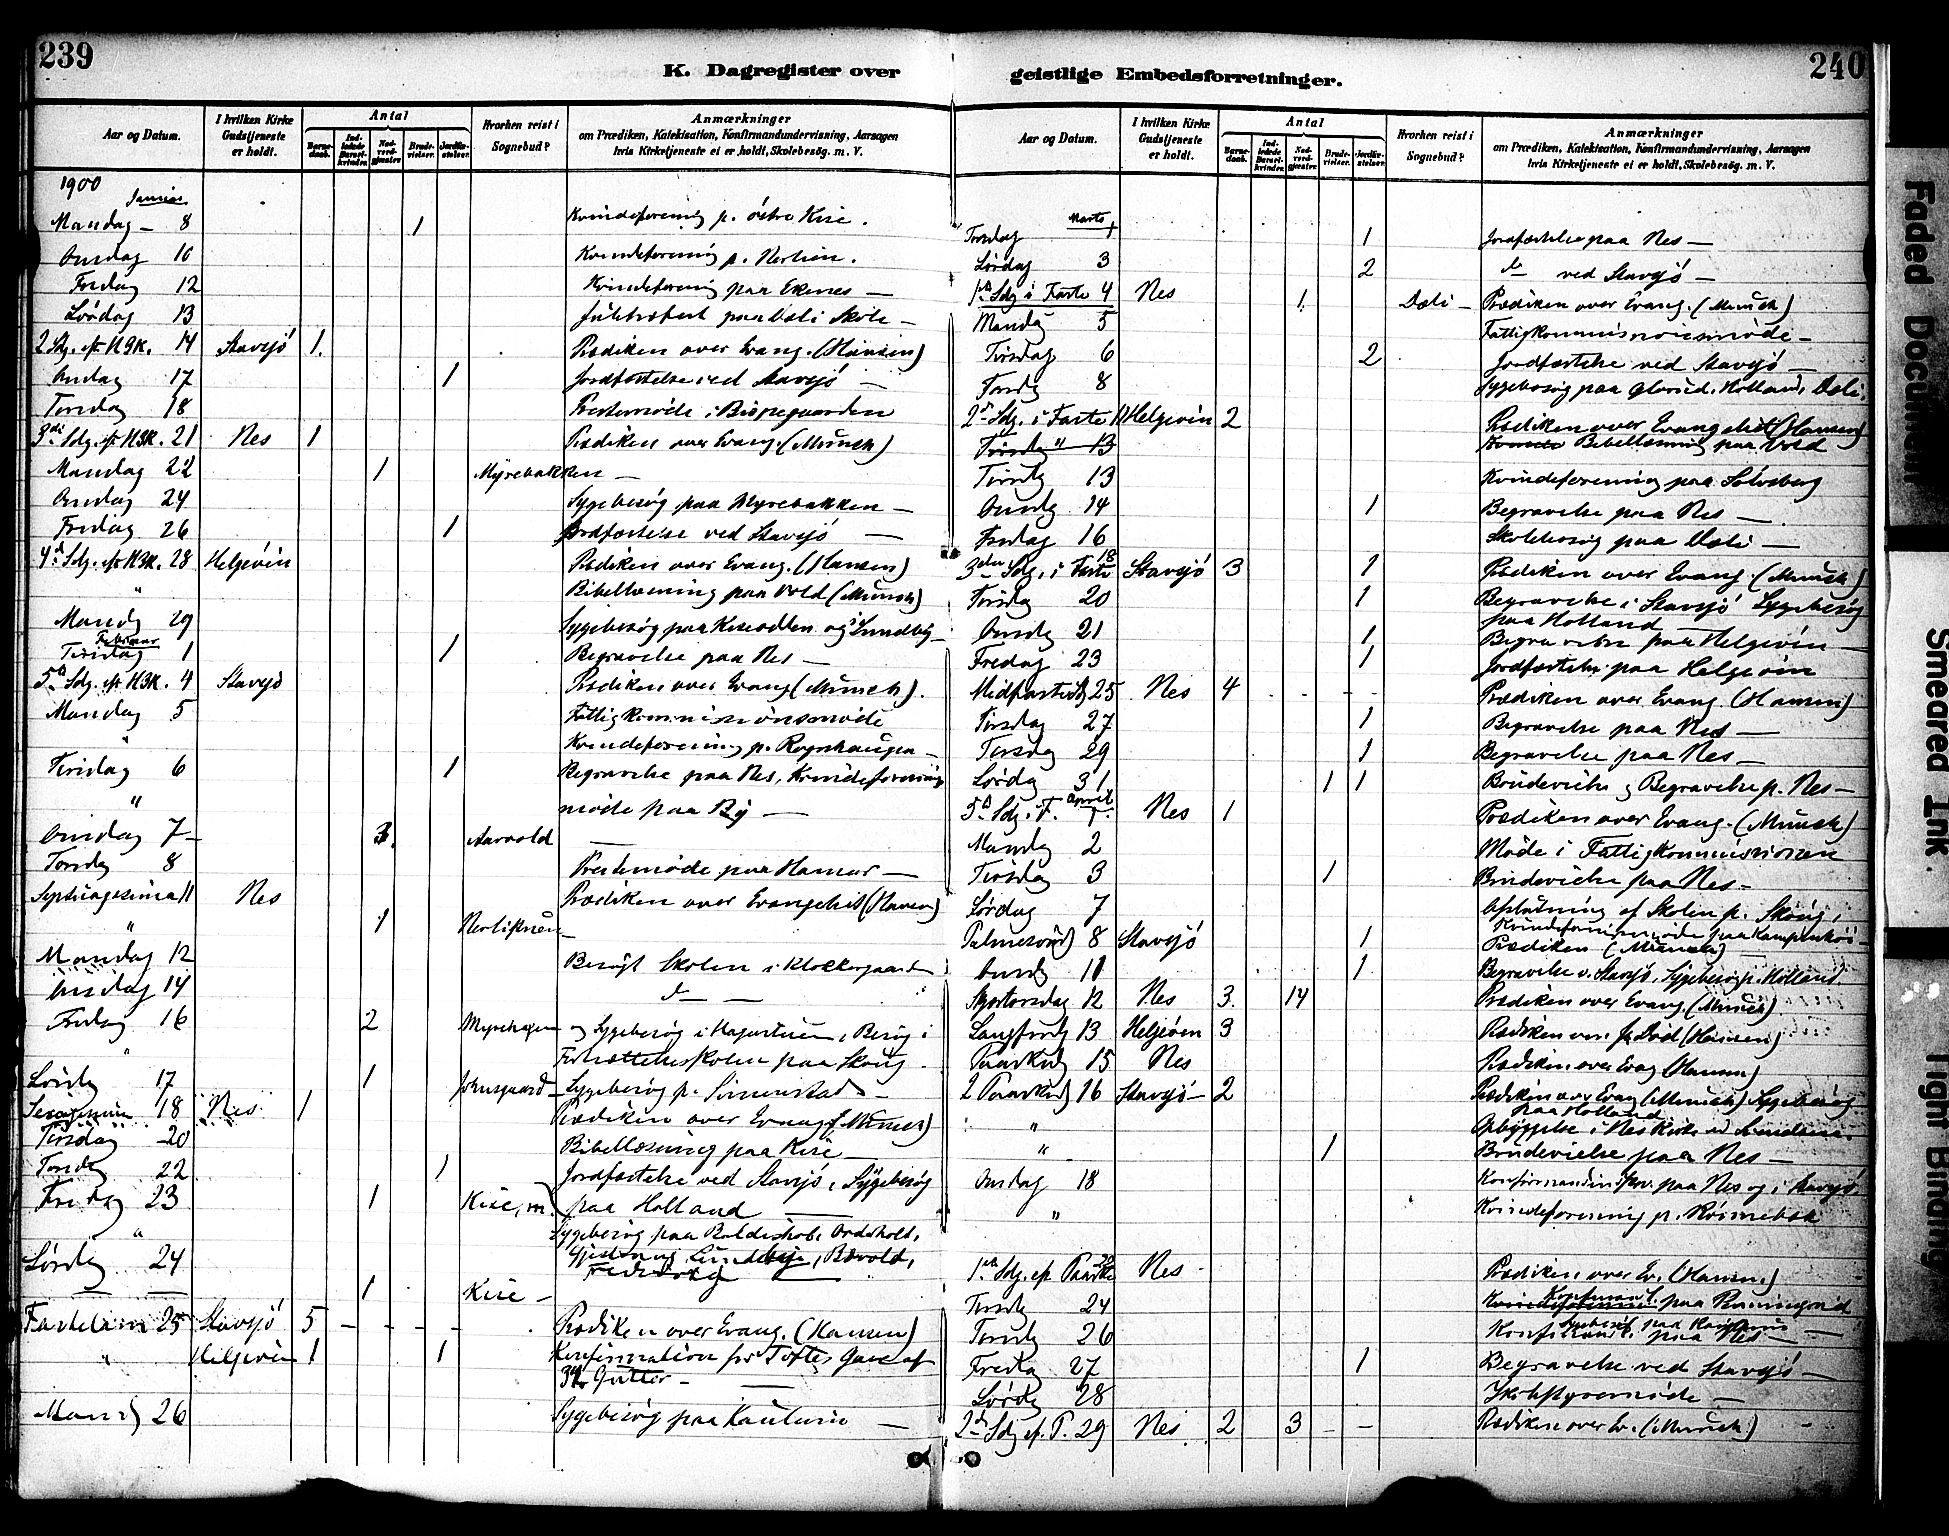 239
K. Dagregister over
Aar og Datum.
I hvilken Kirke Gudstjeneste er holdt.
Antal
Barnedaab.
Indledede Barselkvinder.
Nadverdgjæster.
Brudevielser.
Jordfæstelser.
Hvorhen reist i Sognebud?
Anmærkninger
om Prædiken, Katekisation, Konfirmandundervisning, Aarsagen
hvis Kirketjeneste ei er holdt, Skolebesøg. m. V.
1900
Januar
Mandag 8 1 Kvindeforening p. østre Kise.
Onsdag 10 Kvindeforening p.
Fredag 12 Kvindeforening paa Ekenes
Lørdag 13 Juletræfest paa Dæli Skole
2 Sdg. ef. H3K. 14 Stavsjø 1. Prædiken over Evang. (Hansen)
Onsdag 17 1 Jordfæstelse ved Stavsjø
Torsdag 18 Prestemøde i Bispegaarden
3die Sdg. ef. H3K. 21 Nes 1 Prædiken over Evang. (Munch)
Mandag 22 1 Myrebakken
Onsdag 24 Sygebesøg paa Myrebakken
Fredag 26 1 Jordfæstelse ved Stavsjø
4de Sdg. ef. H3K. 28 Helgøien Prædiken over Evang. (Hansen)
" Bibellæsning paa Vold (Munch)
Mandg 29 Sygebesøg paa og Sundby
Februar
Torsdag 1 1 Begravelse paa Nes
5te Sdg. ef. H3K. 4 Stavsjø Prædiken over Evang (Munch).
Mandag 5 Fattigkommissionsmøde
" Kvindeforening p. Rognhaugen
Tirsdag 6 1 Begravelse paa Nes, Kvindeforenings
" møde paa By
Onsdag 7 3. Aarvold
Torsdg 8 Prestemøde paa Hamar
Septuagesima 11 Nes Prædiken over Evangeliet (Hansen)
" 1
Mandag 12 Besøgt Skolen i Klokkergaard
Onsdag 14 do
Fredag 16 2 Myrehagen og Sygebesøg i, Besøg i
" Fortsættelsesskolen paa Skoug
Lørdg 17 1 Sygebesøg p. Simenstad
18 Nes 1 Prædiken over Evang (Munch)
Tirsdag 20 Bibellæsning paa Kise
Torsdg 22 1 Jordfæstelse ved Stavsjø, Sygebesøg
Fredag 23 1 Kise, m. paa Holland
" Sygebesøg paa
Lørdg 24 og Sundby,
1 Kise
Fastelavn 25 Stavsjø 5 Prædiken over Evang. (Hansen)
" Helgøien 1 1 Konfirmation for Toftes Gave af
34 Gutter
Mand 26 Sygebesøg paa
240
geistlige Embedsforretninger.
Aar og Datum.
I hvilken Kirke Gudstjeneste er holdt.
Antal
Barnedaab.
Indledede Barselkvinder.
Nadverdgjæster.
Brudevielser.
Jordfæstelser.
Hvorhen reist i Sognebud?
Anmærkninger
om Prædiken, Katekisation, Konfirmandundervisning, Aarsagen
hvis Kirketjeneste ei er holdt, Skolebesøg. m. V.
Marts
Torsdag 1 1 Jordfæstelse paa Nes
Lørdag 3 2 do ved Stavsjø
1ste Sdg i Faste 4 Nes 1. Dæli Prædiken over Evang. (Munch)
Mandag 5 Fattigkommissionsmøde
Tirsdag 6 2 Jordfæstelse ved Stavsjø
Torsdg 8 Sygebesøg paa, Holland, Dæli.
2den Sdg. i Faste 11 Helgøien 2 Prædiken over Evangeliet (Hansen)
Tirsdag " 13 Bibellæsning paa Vold
Tirsdg 13 Kvindeforening paa Sølvsberg
Onsdg 14 1 Begravelse paa Nes
Fredag 16 Skolebesøg paa Dæli
3die Sdg. i Faste 18 Stavsjø 3 1 Prædiken over Evang. (Munch)
Tirsdag 20 1 Begravelse i Stavsjø Sygebesøg
paa Holland
Onsdg 21 1 Begravelse paa Helgøien
Fredag 23 1 Jordfæstelse paa Helgøien
Midfaste 25 Nes 4 Prædiken over Evang. (Hansen)
Tirsdag 27 1 Begravelse paa Nes
Torsdag 29 1 Begravelse paa Nes
Lørdag 31 1 1 Brudevielse og Begravelse p. Nes
April
5te Sdg. i F. 1 Nes 1 Prædiken over Evang. (Munch)
Mandg 2 Møde i Fattigkommissionen
Tirsdag 3 1 Brudevielse paa Nes
Lørdag 7 Afslutning af Skolen p. Skoug,
Kvindeforeningsmøde paa
Palmesøndg 8 Stavsjø 1 Prædiken (Munch)
Onsdg 11 1 Begravelse v. Stavsjø, Sygebesøg p. Holland.
Skjærtorsdag 12 Nes 3. 14 Prædiken over Evang. (Munch)
Langfredg 13 Helgøien 3 Prædiken over Js. Død (Hansen)
Paaskedg 15 Nes Prædiken over Evang (Hansen)
2 Paaskedg 16 Stavsjø 2 Prædiken over Evang (Munch) Sygebesøg
paa Holland
" i Nes Kirke ved
" 1 Brudevielse paa Nes
Onsdag 18 paa Nes og i Stavsjø.
" Kvindeforening p.
1ste Sdg. ef. Paaske 22 Nes Prædiken over Ev. (Hansen)
Tirsdg 24 Konfirmand. paa
Sygebesøg paa
Torsdg 26 paa Nes
Fredag 27 1 Begravelse ved Stavsjø
Lørdg 28 Skolestyremøde
2den Sdg ef. P. 29 Nes 2 3 Prædiken over Ev. (Munch)
Faded Document
Smeared Ink.
Tight Binding